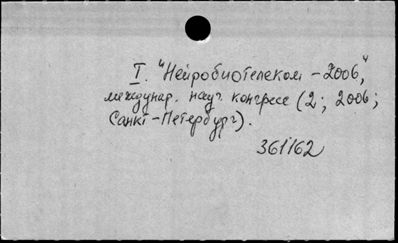 I. "Нейробиотелеком - 2006",
междунар. науч. конгресс (2; 2006;
Санкт-Петербург).
361162